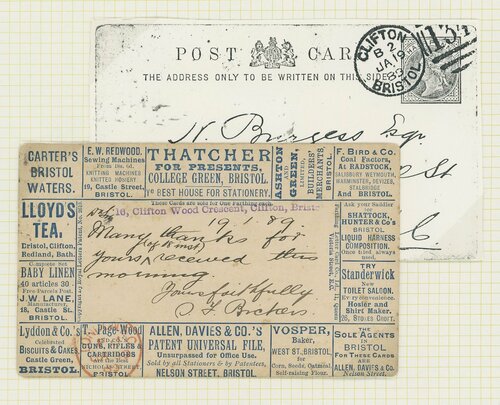 POST CARD
THE ADDRESS ONLY TO BE WRITTEN ON THIS SIDE
CLIFTON
B 2
JA 19
BRISTOL
134
N. Burgess Esqr
St
C.
CARTER'S
BRISTOL
WATERS.
E. W. REDWOOD.
Sewing Machines
From 18s. 6d.
KNITTING MACHINES
KNITTED HOSIERY
19, Castle Street,
BRISTOL.
THATCHER
FOR PRESENTS,
COLLEGE GREEN, BRISTOL
BEST HOUSE FOR STATIONERY.
ASHTON
GREEN,
LIMITED,
BUILDERS'
MERCHANTS,
BRISTOL.
F. BIRD & CO.
Coal Factors,
At RADSTOCK,
SALISBURY, WEYMOUTH,
WARMINSTER, DEVIZES,
STALBRIDGE
And BRISTOL.
These Cards are sold for the use of One Farthing each.
LLOYD'S
TEA.
Bristol, Clifton,
Redland, Bath.
Compose Set
BABY LINEN
40 articles 30
Free Parcels Post.
J. W. LANE,
Manufacturer,
18, Castle St.
BRISTOL.
16, Clifton Wood Crescent, Clifton, Bristol
19 1 87
Many thanks for
yours received this
morning.
Yours faithfully
Ask your Saddler
for
SHATTOCK,
HUNTER & Co's
BRISTOL
LIQUID HARNESS
COMPOSITION.
Once tried, always
used.
TRY
Standerwick
New
TOILET SALOON.
Every convenience.
Hosier and
Shirt Maker.
26, STOKES CROFT.
Lyddon & Co.'s
Celebrated
BISCUITS & CAKES
Castle Green,
BRISTOL
T. Page Wood
GUNS, RIFLES &
CARTRIDGES
are the Best
NICHOLAS STREET,
BRISTOL
ALLEN, DAVIES & CO.'S
PATENT UNIVERSAL FILE,
Unsurpassed for Office Use.
Sold by all Stationers & by Patentees,
NELSON STREET, BRISTOL.
VOSPER,
Baker,
WEST ST., BRISTOL
for
Corn, Seeds, Oatmeal,
Self-raising Flour.
THE
SOLE AGENTS
IN
BRISTOL
FOR THESE CARDS
ARE
ALLEN, DAVIES & Co.
Nelson Street.